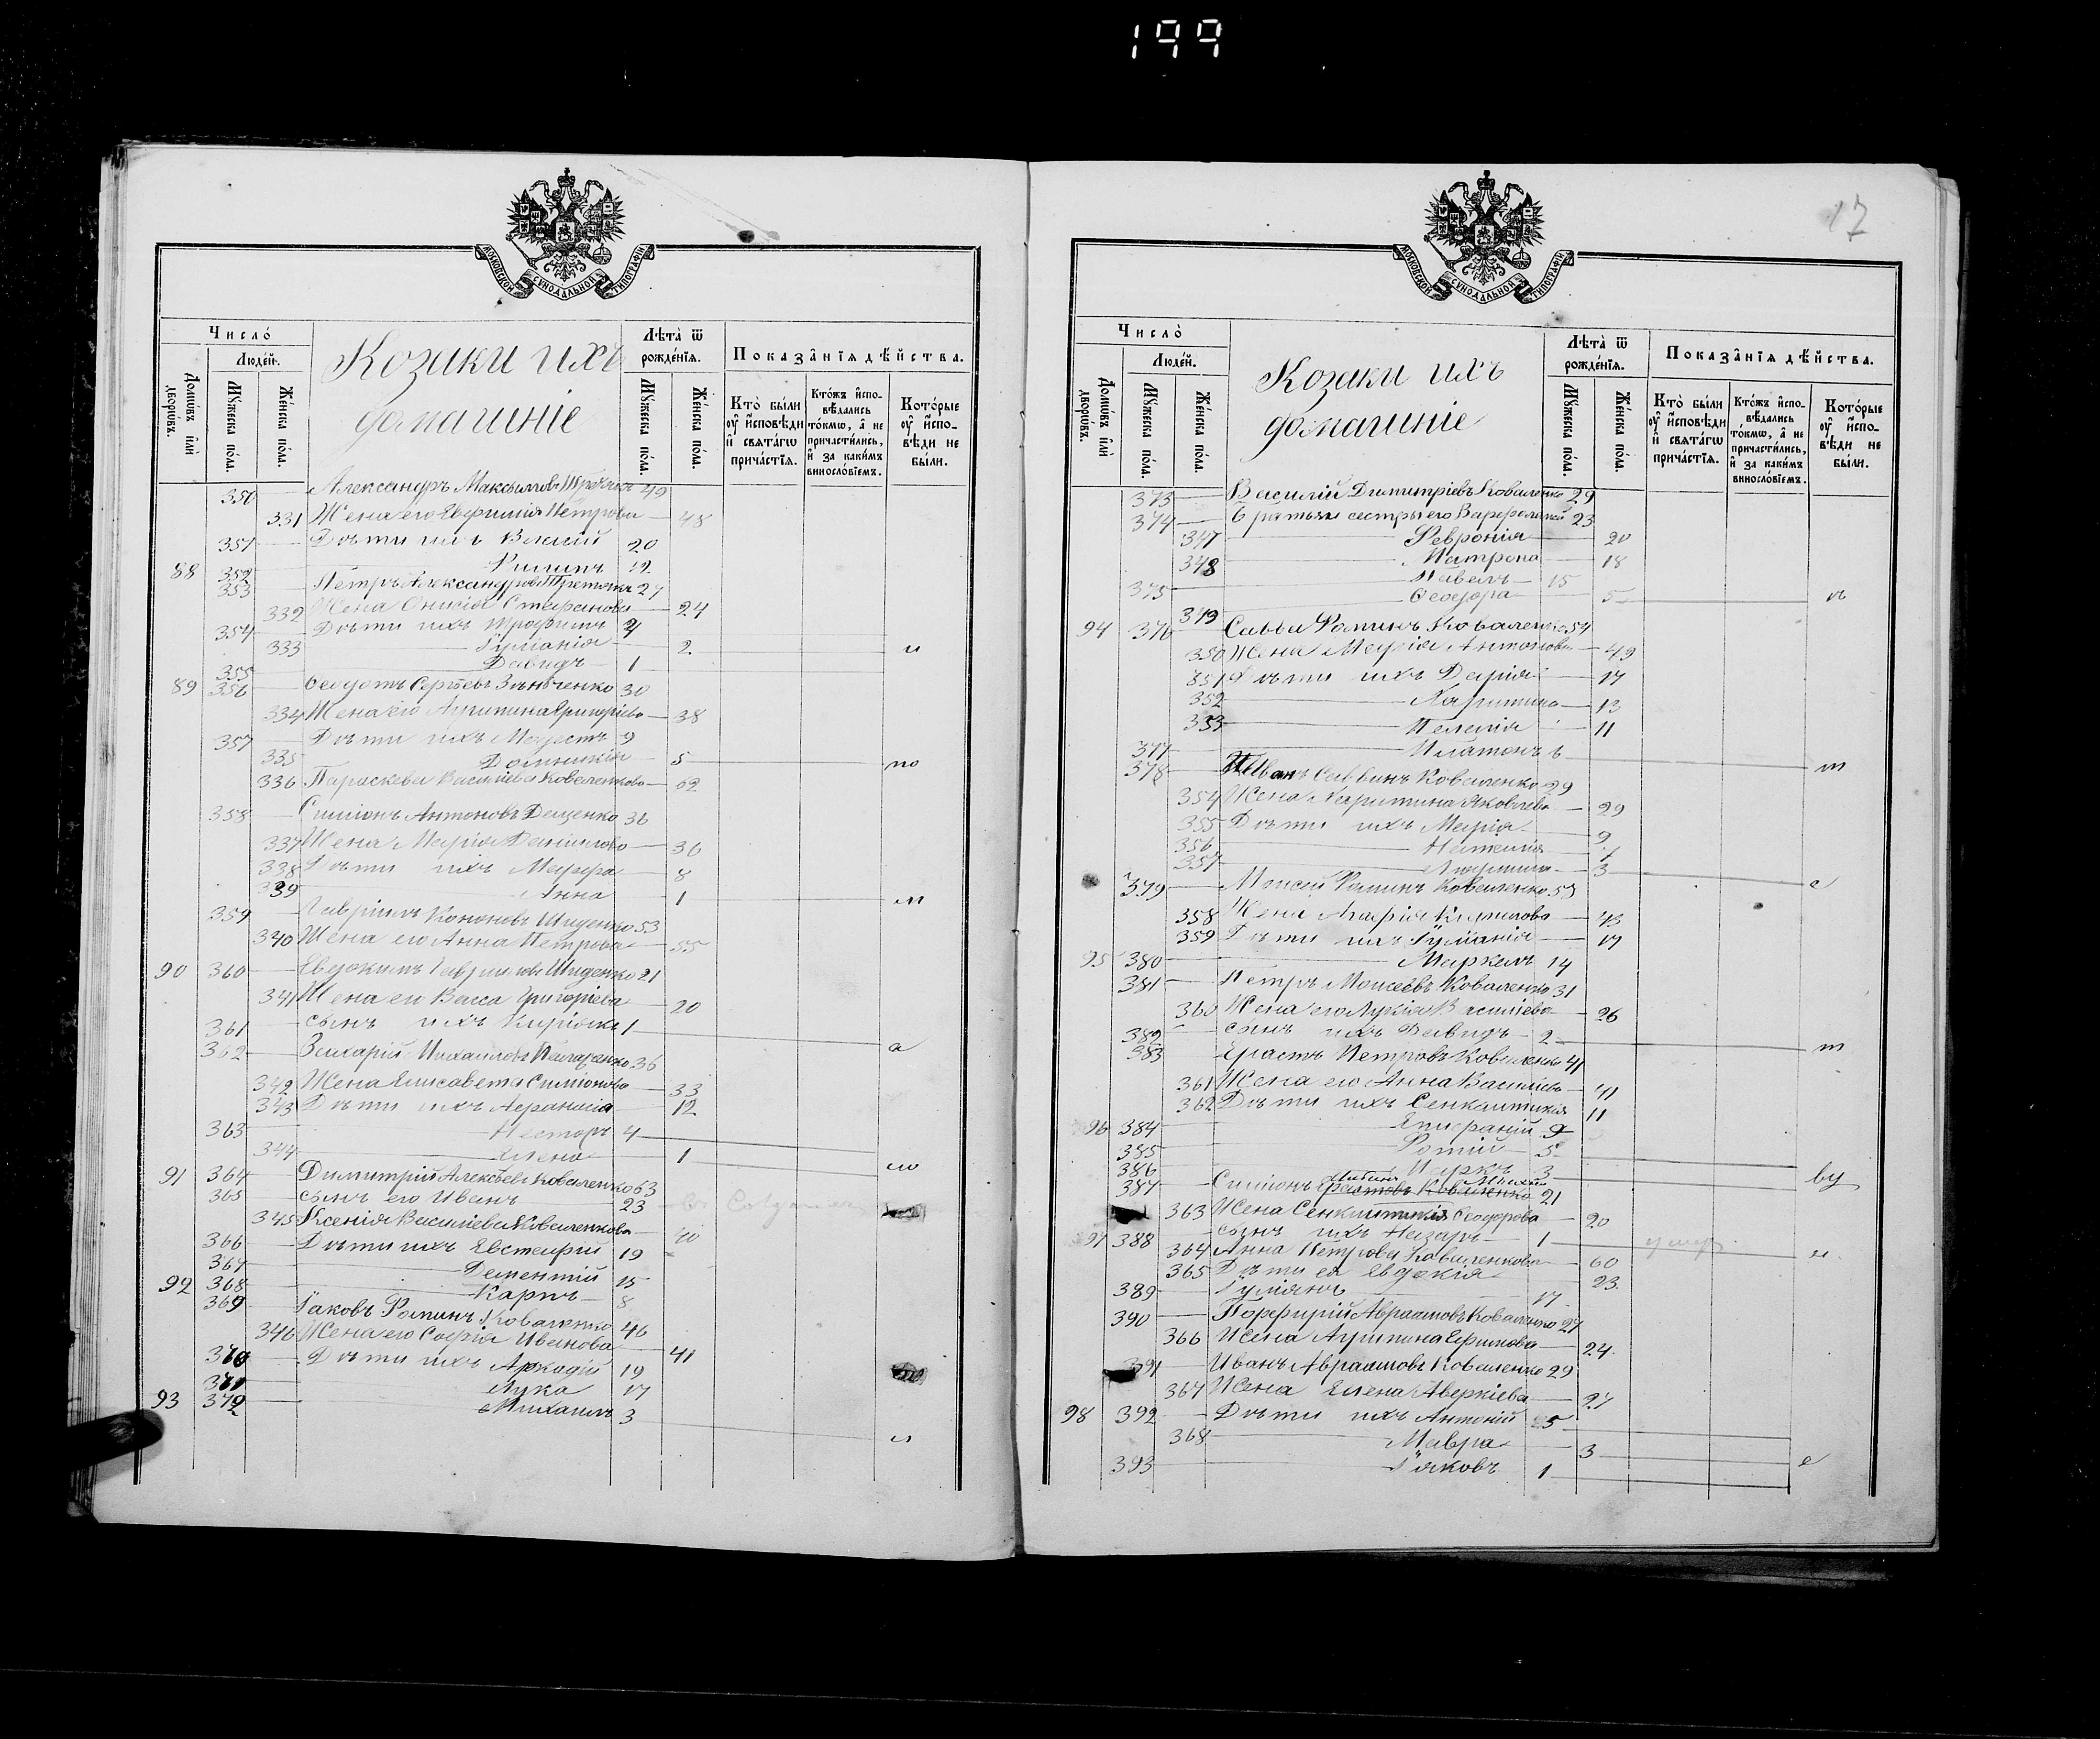 199
МОСКОВСКОЙ СУНОДАЛЬНОЙ ТИПОГРАФІИ
Число̀
Домѡвъ и҆лѝ дворѡвъ.
Люде́й.
Мꙋ́жеска по́ла.
Же́нска по́ла.
Козаки ихъ
домашніе
Лѣта̀ ѿ рожде́нїѧ.
Мꙋ́жеска по́ла.
Же́нска по́ла.
Показа̂нїѧ дѣ́йства.
Кто̀ бы́ли оу҆ и҆сповѣ́ди и҆ свѧта́гѡ причаⷭ҇тїѧ.
Кто́жъ и҆споⷡѣ́дались то́кмѡ, а҆ не причасти́лись, и҆ за каки́мъ винослові́емъ.
Кото́рые оу҆ и҆сповѣ́ди не бы́ли.
350 Александръ Максимовъ 49
331 Жена его Евфимія Петрова 48
351 Дѣти ихъ Василій 20
88 352 Филипъ 12
353 Петръ Александровъ 27
332 Жена Онисія Стефанова 24
354 Дѣти ихъ Трофимъ 4
333 Іуліанія 2 и
355 Давидъ 1
89 356 Ѳеодотъ Сергѣевъ 30
334 Жена его Агрипина Григоріева 38
357 Дѣти ихъ Модестъ 9
335 Домникія 5 по
336 Параскева Васильева Коваленкова 62
358 Симіонъ Антоновъ Даценко 36
337 Жена Марія Даніилова 36
338 Дѣти ихъ Марфа 8
339 Анна 1 м
359 Гавріилъ Кононовъ Шиденко 53
340 Жена его Анна Петрова 55
90 360 Евдокимъ Гавриловъ Шиденко 21
341 Жена его Васса Григоріева 20
361 сынъ ихъ Киріакъ 1 а
362 Захарій Михаиловъ 36
342 Жена Елисавета Симіонова 33
343 Дѣти ихъ Афанасія 12
363 Несторъ 4
344 Елена 1
91 364 Димитрій Алексѣевъ Коваленко 63
365 сынъ его Иванъ 23
345 Ксенія Василіева Коваленкова 40
366 Дѣти ихъ Евстафій 19
367 Дементій 15
92 368 Карпъ 8
369 Іаковъ Фоминъ Коваленко 46
346 Жена его Софія Иванова 41
370 Дѣти ихъ Аркадій 19
371 Лука 17
93 372 Михаилъ 3
17
МОСКОВСКОЙ СУНОДАЛЬНОЙ ТИПОГРАФІИ
Число̀
Домѡвъ и҆лѝ дворѡвъ.
Люде́й.
Мꙋ́жеска по́ла.
Же́нска по́ла.
Козаки ихъ
домашніе
Лѣта̀ ѿ рожде́нїѧ.
Мꙋ́жеска по́ла.
Же́нска по́ла.
Показа̂нїѧ дѣ́йства.
Кто̀ бы́ли оу҆ и҆сповѣ́ди и҆ свѧта́гѡ причаⷭ҇тїѧ.
Кто́жъ и҆споⷡѣ́дались то́кмѡ, а҆ не причасти́лись, и҆ за каки́мъ винослові́емъ.
Кото́рые оу҆ и҆сповѣ́ди не бы́ли.
373 Василій Димитріевъ Коваленко 29
374 Братья и сестры его Варфоломей 23
347 Февронія 20
348 Матрона 18
375 Павелъ 15
349 Ѳеодора 5
94 376 Савва Фоминъ Коваленко 54
350 Жена Марія Антонова 49
351 Дѣти ихъ Дарія 17
352 Харитина 13
353 Пелагія 11
377 Платонъ 6 т
378 Иванъ Саввинъ Коваленко 29
354 Жена Харитина Яковлева 29
355 Дѣти ихъ Марія 9
356 Наталія 7
357 Людмила 3 е
379 Моисей Фоминъ Коваленко 53
358 Жена Агафія 43
359 Дѣти ихъ Іуліанія 17
95 380 Маркелъ 14
381 Петръ Моисеевъ Коваленко 31
360 Жена его Лукія Василіева 26
382 сынъ ихъ Давидъ 2 т
383 Ерастъ Петровъ Коваленко 41
361 Жена его Анна Василіева 41
362 Дѣти ихъ Сенклитикія 11
96 384 Епифаній 9
385 Фотій 5
386 Маркъ 3 ву
387 Симіонъ Ерастовъ Коваленко 21
363 Жена Сенклитикія Ѳеодорова 20
97 388 сынъ ихъ Назаръ 1 умер. и
364 Анна Петрова Коваленкова 60
365 Дѣти ея Евдокія 23
389 Іуліанъ 17
390 Порфирій Авраамовъ Коваленко 27
366 Жена Агрипина Ефимова 24
391 Иванъ Авраамовъ Коваленко 29
367 Жена Елена Аверкіева 27
98 392 Дѣти ихъ Антоній 5
368 Мавра 3 е
393 Іаковъ 1